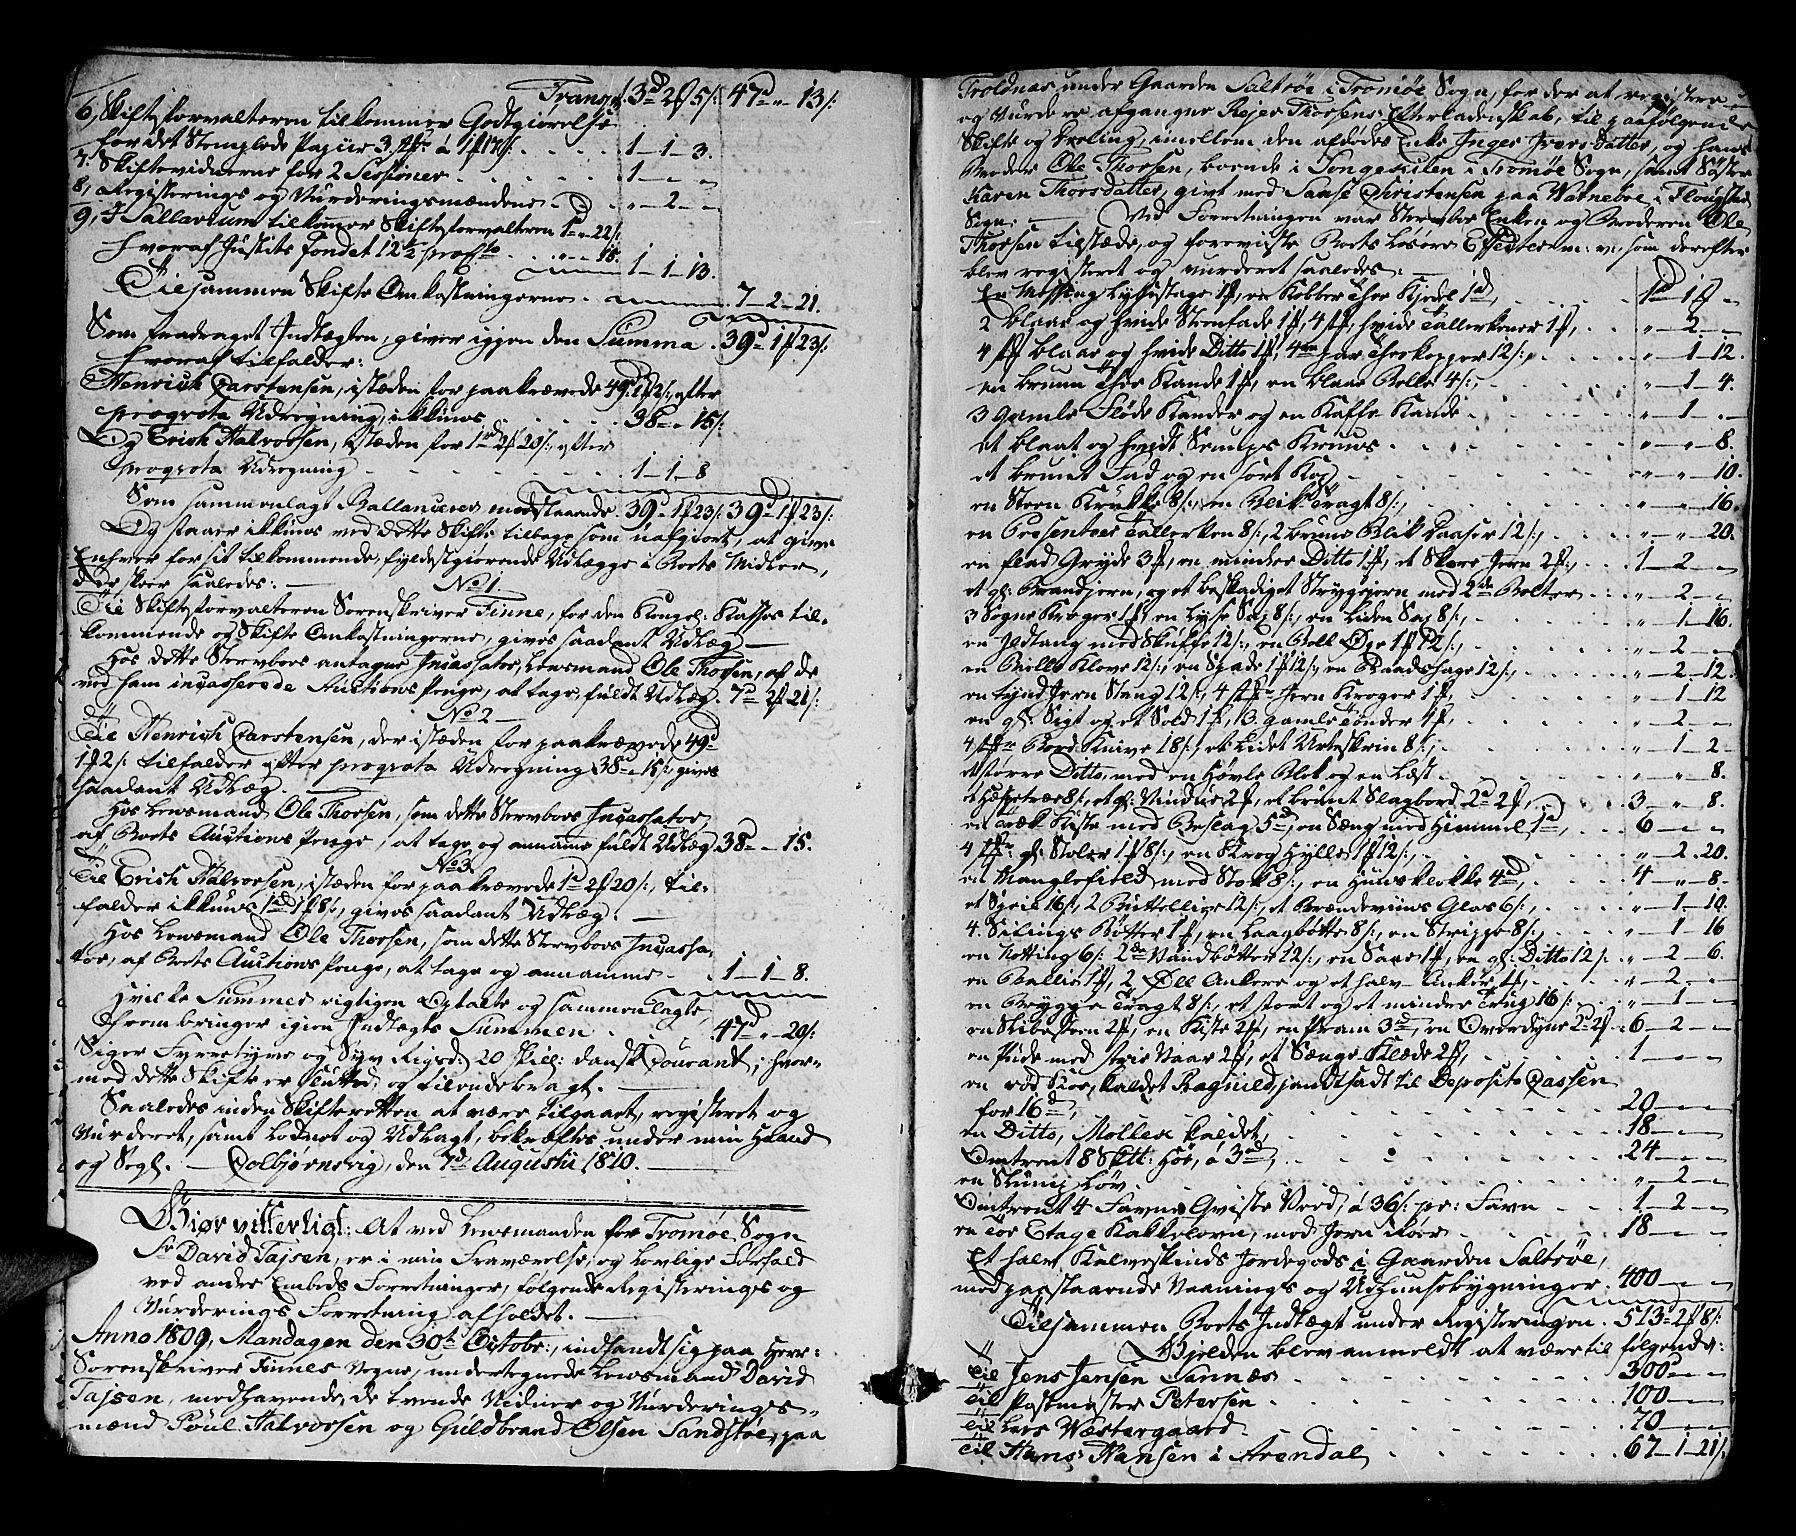 Transp: 3d 2ƒ 5/: 47d " 13/:
6, Skifteforvalteren tilkommer Godtgiørelse
for det Stemplede Papiir 3 Ark á 1ƒ 17/: 1 – 1 – 3.
7. Skiftevidnerne for 2 Sessioner 1 – " – "
8, Registerings og Vurderingsmændene " – 2 – "
9, I Sallarium tilkomer Skifteforvalteren 1d " 22/:
hvoraf Justits Fondet 12½ proCto " – 15. 1 – 1 – 13.
Tilsammen Skifte Omkostningerne 7 – 2 – 21.
Som fradraget Indtægten, giver igjen den Summa 39d 1ƒ 23/:
hvoraf tilfalder:
Henrich Carstensen, istæden for paakrævede 49d 1ƒ 2/: efter
proqvota Udregning, ikkuns 38 – " 15/:
Og Erich Halvorsen, istæden for 1d 2ƒ 20/: efter
proqvota Udregning 1 – 1 – 8
Som sammenlagt Ballancerer modstaaende 39d 1ƒ 23/: 39d 1ƒ 23/:
Og staaer ikkuns ved dette Skifte tilbage som uafgiort, at give
Enhver for sit tilkommende, fyldestgiørende Udlægge i Boets Midler,
der skeer saaledes: –
No 1.
Til Skifteforvalteren Sorenskriver Finne, for den Kongel: Kasses til-
kommende og Skifte Omkostningerne, gives saadant Udlæg –
Hos dette Stervboes antagne Incassator, Lensmand Ole Thorsen, af de
ved ham incasserede Auctions Penge, at tage fuldt Udlæg 7d 2ƒ 21/:
No 2
Til Henrich Carstensen, der istæden for paakrævede 49d
1ƒ 2/: tilfalder efter proqvota Udregning 38d " 15/: gives
saadant Udlæg. –
Hos Lensmand Ole Thorsen, som dette Stervboes Incassator,
af Boets Auctions Penge, at tage og annamme fuldt Udlæg 38 – " 15.
No 3
Til Erich Halvorsen, istæden for paakrævede 1d 2ƒ 20/:, til-
falder ikkuns 1d 1ƒ 8/:, gives saadant Udlæg. –
Hos Lensmand Ole Thorsen, som dette Stervboes Incassa-
tor, af Boets Auctions Penge, at tage og annamme 1 – 1 – 8.
Hvilke Summer rigtigen Optalte og sammenlagte,
frembringer igien Indtægts Summen 47d " 20/:
Siger Fyrretyve og Syv Rigsd: 20 skill: dansk Courant; hvor-
med dette Skifte er sluttet og tilendebragt. –
Saaledes inden Skifteretten at være tilgaaet, registeret og
Vurderet, samt Lodnet og Udlagt, bekræftes under min Haand
og Segl. – Colbjørnsvig, den 7de Augustii 1810. –
Giør vitterligt: At ved Lensmanden for Tromøe Sogn
Sr David Tajsen, er i min Fraværelse, og Lovlige Forfald
ved andre Embeds Forretninger, følgende Registerings og
Vurderings Forretning afholdet. –
Anno 1809, Mandagen den 30te Octobr:, indfandt sig paa Herr:
Sorenskriver Finnes Vegne, undertegnede Lensmand David
Tajsen, medhavende de tvende Vidner og Vurderings-
mænd Poul Halvorsen og Guldbrand Olsen Sandstøe, paa
Troldnæs under Gaarden Saltrøe i Tromøe Sogn, for der at registere
og Vurdere afgangne Rejer Thorsens Efterladenskab, til paafølgende
Skifte og Deeling, imellem den afdødes Enke Inger Ivers Datter, og hans
Broder Ole Thorsen, boende i Songekilen i Tromøe Sogn, samt Søster
Karen Thorsdatter, givt med Aanse Christensen paa Watnebøe i Flougstad
Sogn: – Ved Forretningen var Stervboe Enken og Broderen Ole
Thorsen tilstæde, og foreviiste Boets Løsøre Effecter m: v: som derefter
blev registeret og vurderet saaledes: –
En Messing Lysestage 1ƒ, en Kobber Thee Kjedel 1d, 1d 1ƒ "
2 blaae og hvide Steenfade 1ƒ, 4 stk hvide Tallerkener 1ƒ, " – 2 – "
4 stk blaae og hvide Ditto 1ƒ, 4re par Theekopper 12/: " – 1 – 12.
en bruun Thee Kande 1ƒ, en blaae Bolle 4/:, " – 1 – 4.
3 gamle Fløde Kander og en Kaffe Kande " – 1 – "
et blaat og hvidt Senneps Kruus " – " – 8.
et bruunt Fad og en sort Kop " – " – 10.
en Steen Krukke 8/:, en Blik Tragt 8/:, " – " – 16.
en Presenteer Tallerken 8/:, 2 brune Blik Daaser 12/:, " – " – 20.
en flad Gryde 3ƒ, en mindre Ditto 1ƒ, et Skære Jern 2ƒ, 1 – 2 – "
et gl: Brandjern, og et beskadiget Strygejern med 2de Bolter " – 2 – "
3 Sogne Kroger 1ƒ, en Lyse Sax 8/:, en Liden Sax 8/:, " – 1 – 16.
en Ildtang med Skuffe 12/:, en Boll Øxe 1ƒ 12/:, " – 2 – "
en Bolle Klove 12/:, en Spade 1ƒ 12/:, en Raadsauge 12/:, " – 2 – 12.
en tynd Jern Stang 12/:, 4 stkr Jern Kroger 1ƒ, " – 1 – 12
en gl: Sigt og et Sold 1ƒ, 3 gamle Tønder 1ƒ, " – 2 – "
4 stkr Bord Knive 18/:, et Lidet Urteskrin 8/:, " – 1 – 2 –
et større Ditto, med en Høvle Blok og en Læst " – " – 8.
et Hespetræe 8/:, et gl: Vindue 2ƒ, et bruunt Slagbord 2d 2ƒ, 3 – " – 8.
en Træk Kiste med Beslag 5d, en Sæng med Himmel 1d, 6 – " – "
4 stkr gl: Stoler 1ƒ 8/:, en Krog Hylle 1ƒ 12/:, " – 2 – 20.
en Manglefield med Stok 8/:, en Huusklokke 4d, 4 – " – 8.
et Speil 16/:, 2 Buttellier 12/:, et Brændeviins Glas 6/:, " – 1 – 10.
4 Silings Bøtter 1ƒ, en Laagbøtte 8/:, en Strippe 8/:, " – 1 – 16
en Notting 6/: 2de Vandbøtter 12/:, en Saae 1ƒ, en gl: Ditto 12/: " – 2 – 6.
en Ballie 1ƒ, 2 Øll Ankere og et halv Anker 1ƒ, " – 2 – "
en Brygge Tragt 8/:, et stort og et mindre Trug 16/: " – 1 – "
en Slibesteen 2ƒ, en Kiste 2ƒ, en Pram 3d, en Overdyne 2d 2ƒ 6 – 2 – "
en Pude med stribe Vaar 2ƒ, et Sænge Klæde 2ƒ, 1 – " – "
en rød Koe, kaldet Ragnild, pandtsadt til Deposito Cassen
for 16d, 20 – " – "
en Ditto, Molleke kaldet, 18 – " – "
Omtrent 8 Sktt: Høe, á 3d, 24 – " – "
en Slump Løv " – 2 – "
Omtrent 4 Favne Qviste Veed, á 36/: pr: Favn 1 – 2 – "
en Toe Etage Kakkelovn, med Jern Rør 18 – " – "
Et halv Kalveskinds Jordegods i Gaarden Saltrøe,
med paastaaende Vaanings og Udhuusebygninger 400 – " – "
Tilsammen Boets Indtægt under Registeringen 513 – 2ƒ 8/:
Gjelden blev anmeldt at være til følgende:
Til Jens Jensen Sannæs 300d " – "
Til Postmester Petersen 100 – " – "
Til Lars Westergaard 70 – " – "
Til Hans Hansen i Arendal 67 – 1 – 21/: